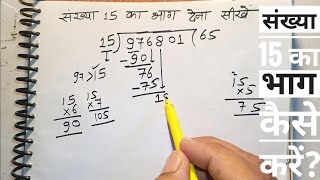 संख्या 15 का भाग देना सीखें
15 976801 65
-90
97>15 76
-75
18
15 15
×6 ×7
90 105
15
×5
75
संख्या
15 का
भाग
कैसे
करें?